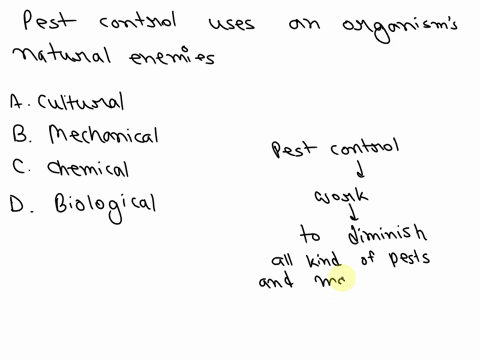 Pest control uses an organism's
natural enemies
A. Cultural
B. Mechanical
C. Chemical
D. Biological
Pest control
work
to diminish
all kind of pests
and ma